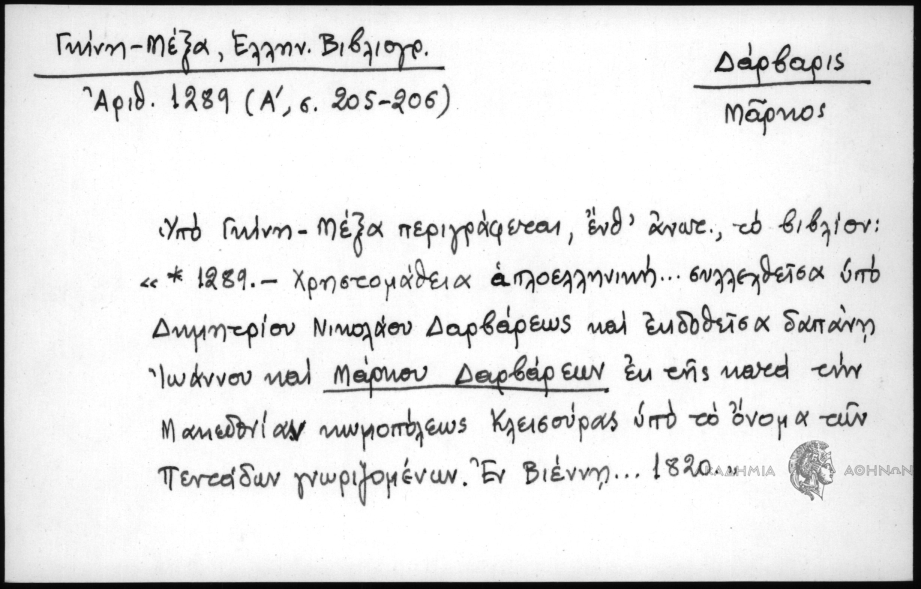 Γκίνη-Μέξα, Ἑλλην. Βιβλιογρ.
Ἀριθ. 1289 (Α', σ. 205-206)
Δάρβαρις
Μᾶρκος
Ὑπό Γκίνη-Μέξα περιγράφεται, ἔνθ' ἄνωτ., τό βιβλίον:
«* 1289.- Χρηστομάθεια ἁπλοελληνική... συλλελθεῖσα ὑπό
Δημητρίου Νικολάου Δαρβάρεως καί ἐκδοθεῖσα δαπάνῃ
Ἰωάννου καί Μάρκου Δαρβάρεων ἐκ τῆς κατά τήν
Μακεδονίαν κωμοπόλεως Κλεισούρας ὑπό τό ὄνομα τῶν
Πεντάδων γνωριζομένων. Ἐν Βιέννῃ... 1820.»
ΑΚΑΔΗΜΙΑ ΑΘΗΝΩΝ